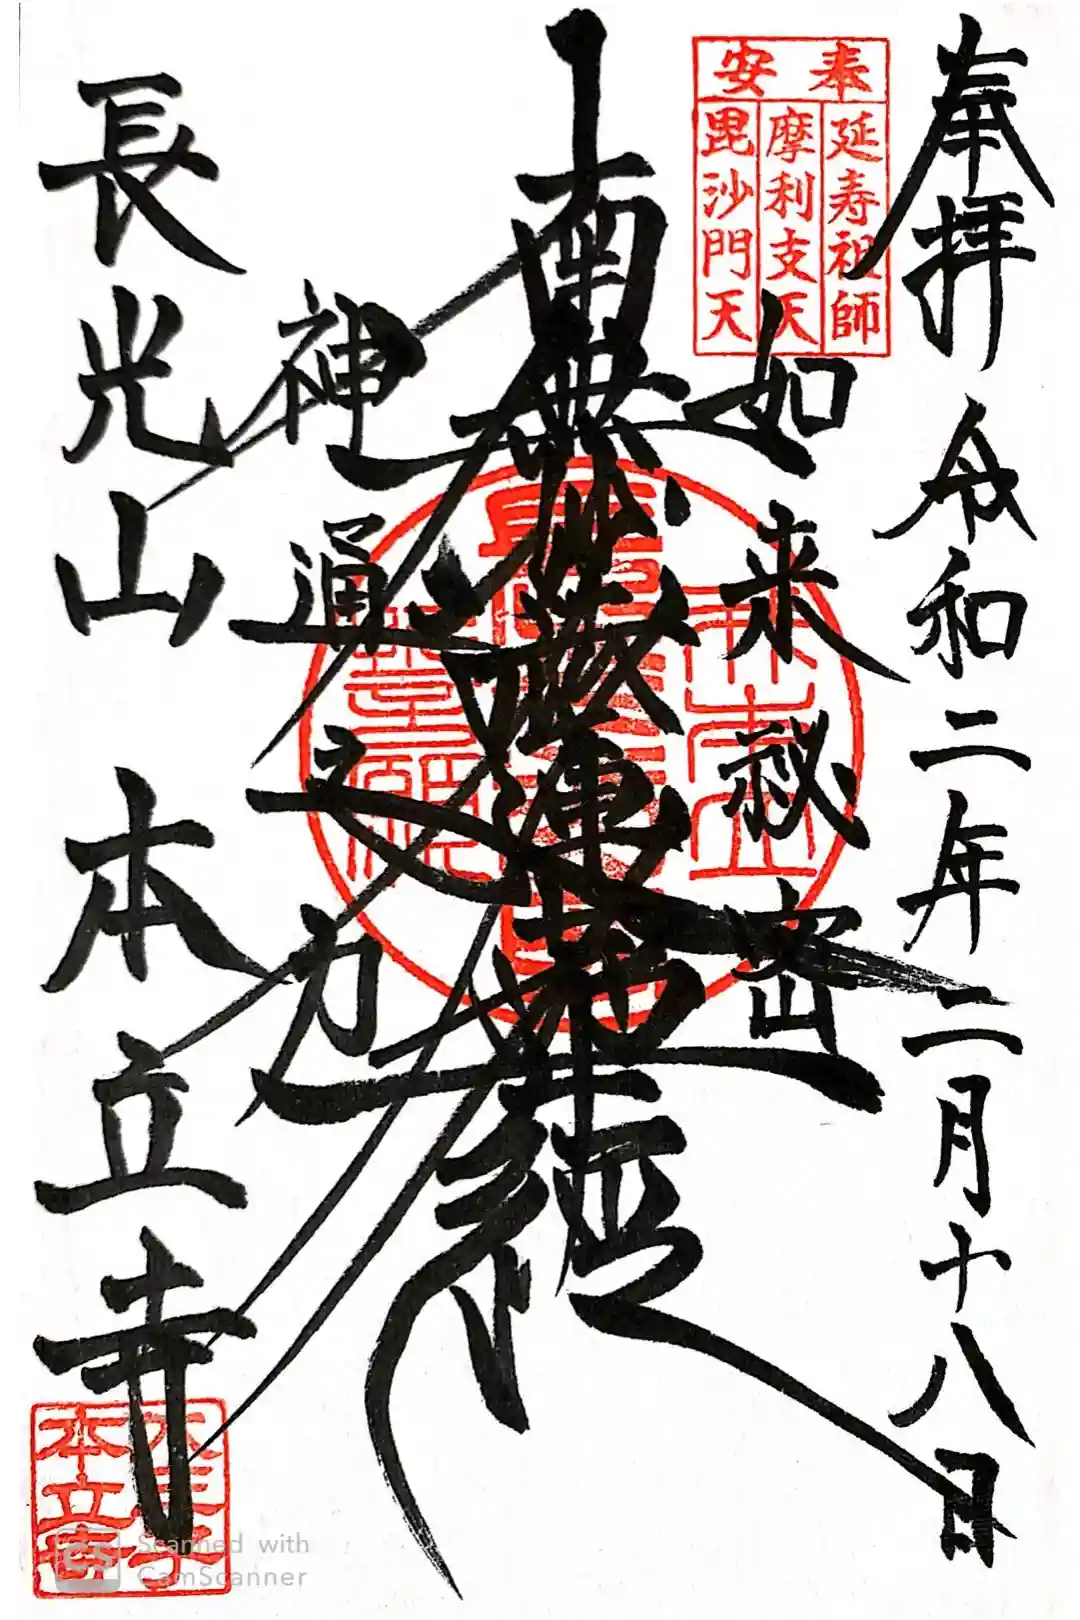 奉拝 令和二年二月十八日
奉安
延寿祖師
摩利支天
毘沙門天
如来秘密
南無妙法蓮華経
神通之力
長光山 本立寺
本立寺
Scanned with
CamScanner